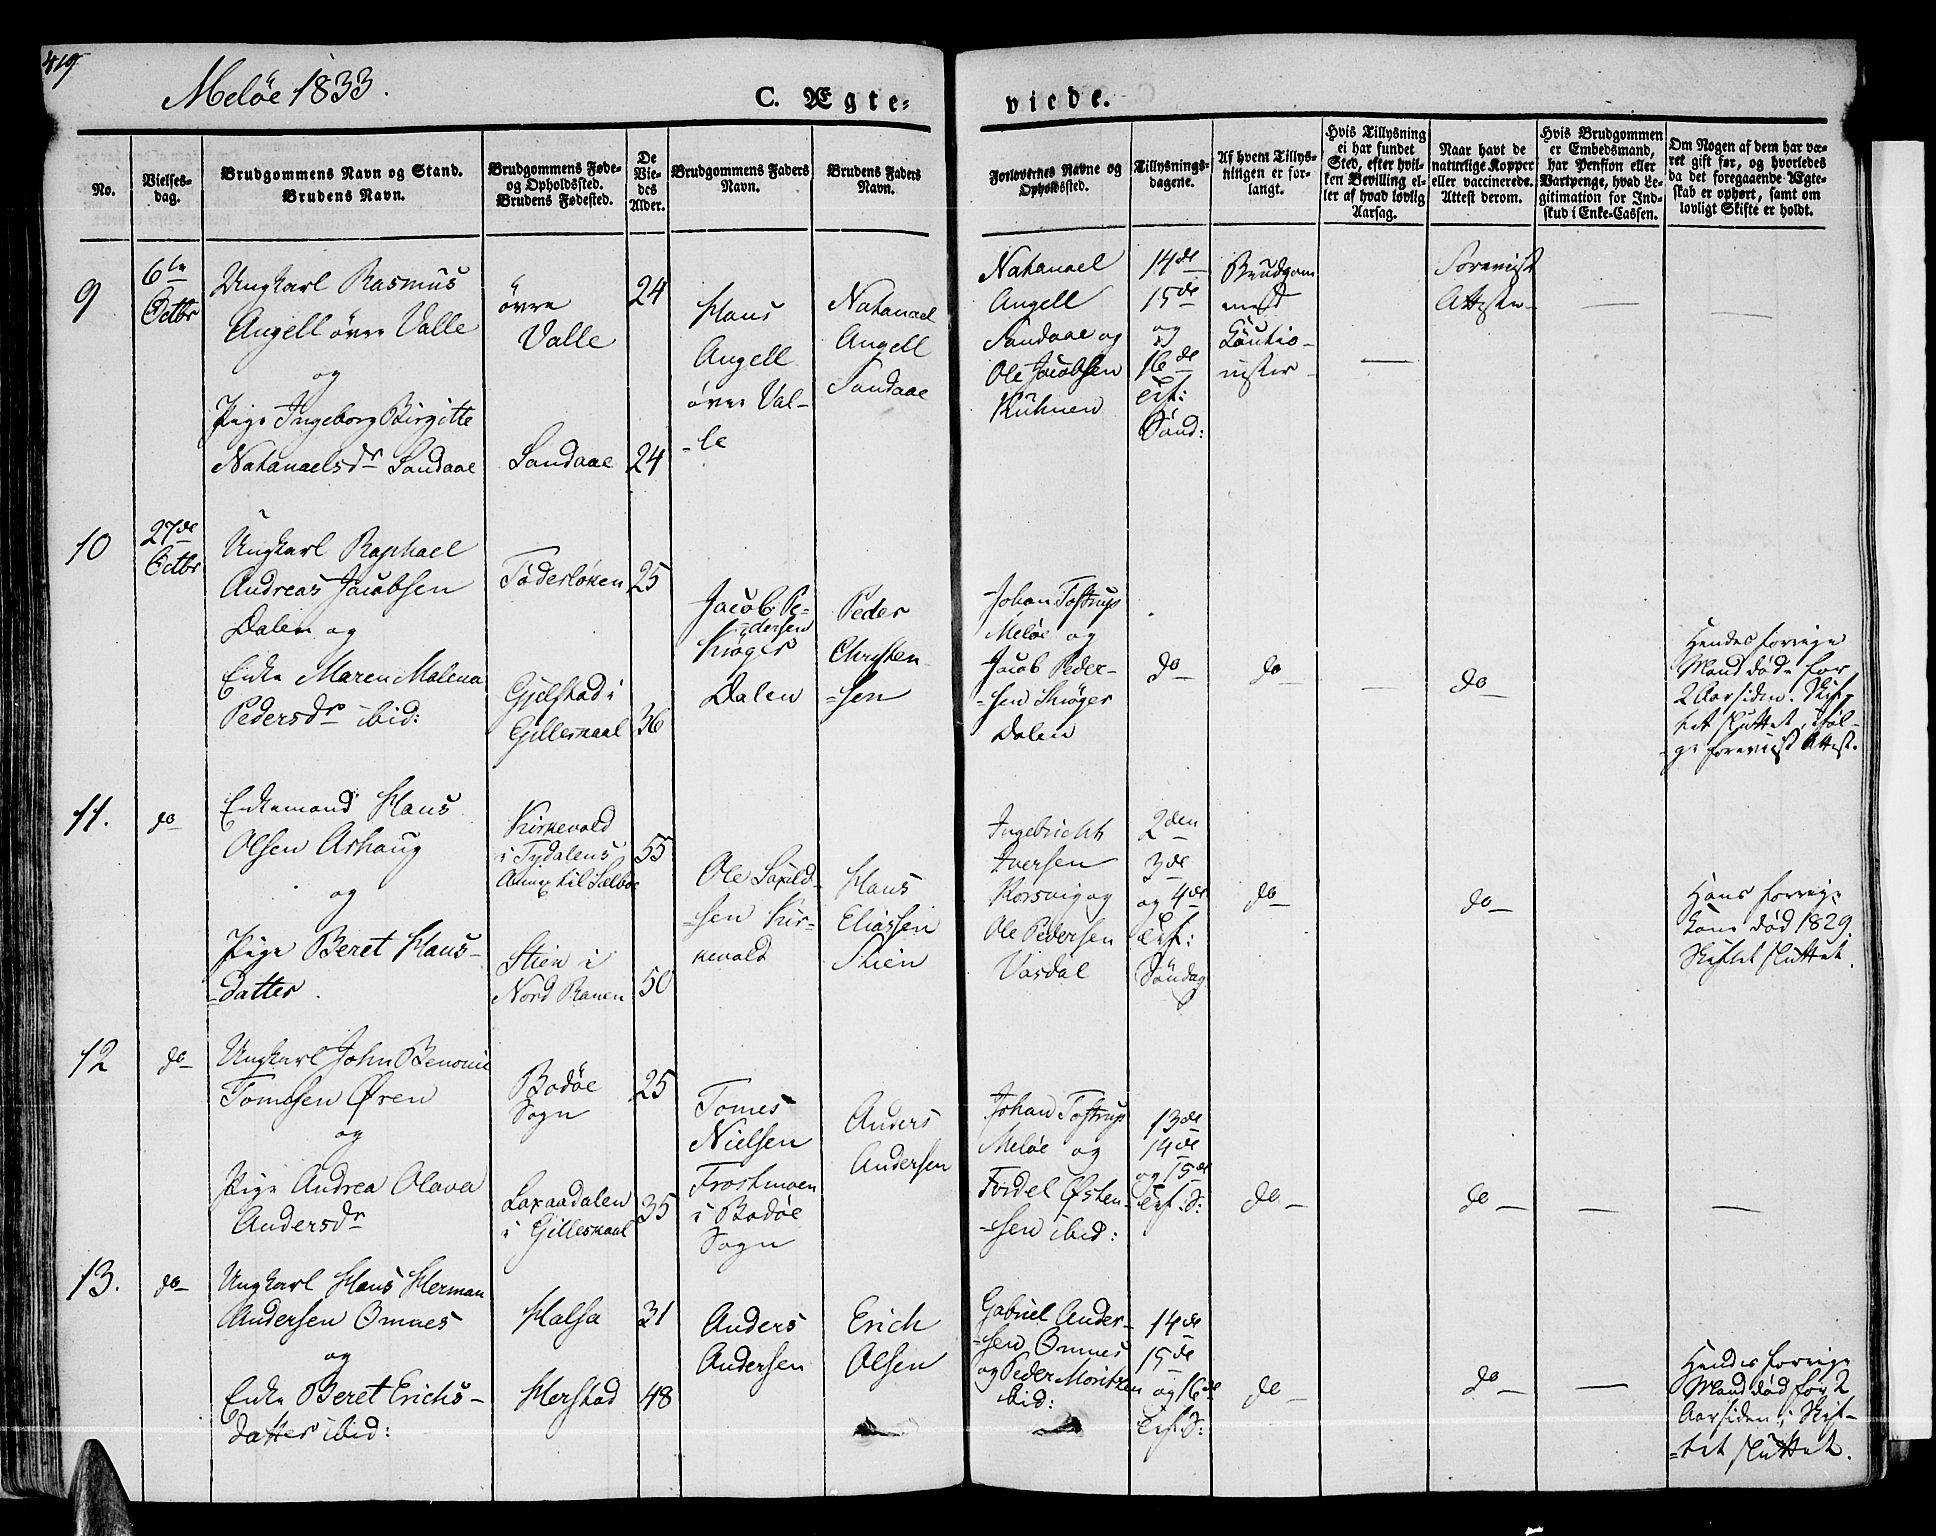 419
Meløe 1833.
C. Ægte-
viede.
No.
Vielses-
dag.
Brudgommens Navn og Stand.
Brudens Navn.
Brudgommens Føde-
og Opholdssted.
Brudens Fødested.
De
Vie-
des
Alder.
Brudgommens Faders
Navn.
Brudens Faders
Navn.
Forlovernes Navne og
Opholdssted.
Tillysnings-
dagene.
Af hvem Tillys-
ningen er for-
langt.
Hvis Tillysning
ei har fundet
Sted, efter hvil-
ken Bevilling el-
ler af hvad lovlig
Aarsag.
Naar havt de
naturlige Kopper
eller vaccinerede.
Attest derom.
Hvis Brudgommen
er Embedsmand,
har Pension eller
Vartpenge, hvad Le-
gitimation for Ind-
skud i Enke-Cassen.
Om Nogen af dem har væ-
ret gift før, og hvorledes
da det foregaaende Ægte-
skab er ophørt, samt om
lovligt Skifte er holdt.
9
6te
Octbr
Ungkarl Rasmus
Angell øvre Valle
og
Pige Ingeborg Birgitte
Nathanaelsdr Sandaae
øvre
Valle
Sandaae
24
24
Hans
Angell
øvre Val-
-le
Nathanael
Angell
Sandaae
Nathanael
Angell
Sandaae og
Ole Jacobsen
Kühnen
14de
15de
og
16de
Trf:
Sønd:
Brudgom
med
Cautio-
nister
Foreviist
Attester
10
27de
Octbr
Ungkarl Raphael
Andreas Jacobsen
Dalen og
Enke Maren Malena
Pedersdr ibid:
Gjelstad i
Gilleskaal
25
36
Jacob Pe-
-dersen
Skøger
Dalen
Peder
Christen-
-sen
Johan Tostrup
Meløe og
Jacob Peder-
-sen Skøger
Dalen
do
do
do
Hendes forrige
Mand døde for
2 Aar siden. Skif-
tet sluttet, iføl-
ge foreviist Attest.
11.
do
Enkemand Hans
Olsen Ashaug
og
Pige Beret Hans-
-datter.
Kirkevold
i Tydalens
Annex til Sælboe
Stien i
Nord Ranen
55
50
Ole
-sen Kir-
kevold
Hans
Eliassen
Stien
Ingebricht
Iversen
Korsvig og
Ole Pedersen
Vasdal
2den
3de
og 4de
Trf:
Søndag
do
do
Hans forrige
Kone død 1829.
Skiftet sluttet.
12
do
Ungkarl John Benonie
Tomesen Øren
og
Pige Andrea Olava
Andersdr
Bodøe
Sogn
Laxaadalen
i Gilleskaal
25
35
Tomes
Nielsen
Frostmoen
i Bodøe
Sogn
Anders
Andersen
Johan Tostrup
Meløe og
Fordel Østen-
-sen ibid:
13de
14de
og 15de
Trf. S:
do
do
13.
do
Ungkarl Hans Herman
Andersen Ømnes
og
Enke Beret Erichs-
datter ibid:
Halsa
Herstad
31
48
Anders
Andersen
Erich
Olsen
Gabriel Ander-
-sen Ømnes
og Peder Moritzen
ibid:
14de
15de
og 16de
Trf. S:
do
do
Hendes forrige
Mand død for 2
Aar siden; Skif-
-tet sluttet.